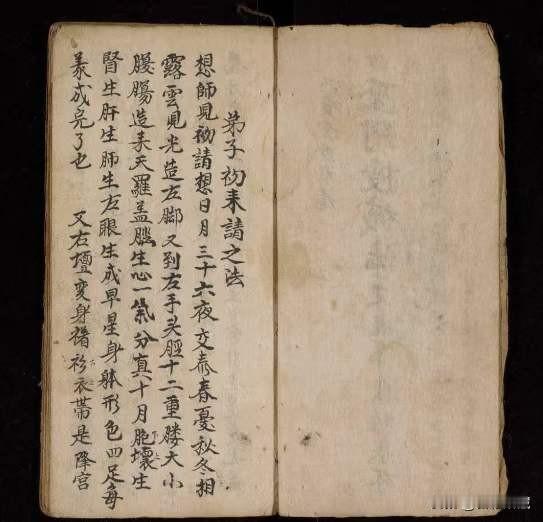 弟子初耒請之法
想師見初請想日月三十六夜交泰春憂秋冬相
露雲見光造左脚又到左手头脛十二重腰大小
腹腸造耒天羅盖生心一氣分真十月胞壞生
腎生肝生肺生左眼生成早星身躰形色四足每
成亮了也 又右壇变身褚衫衣帶是降宮